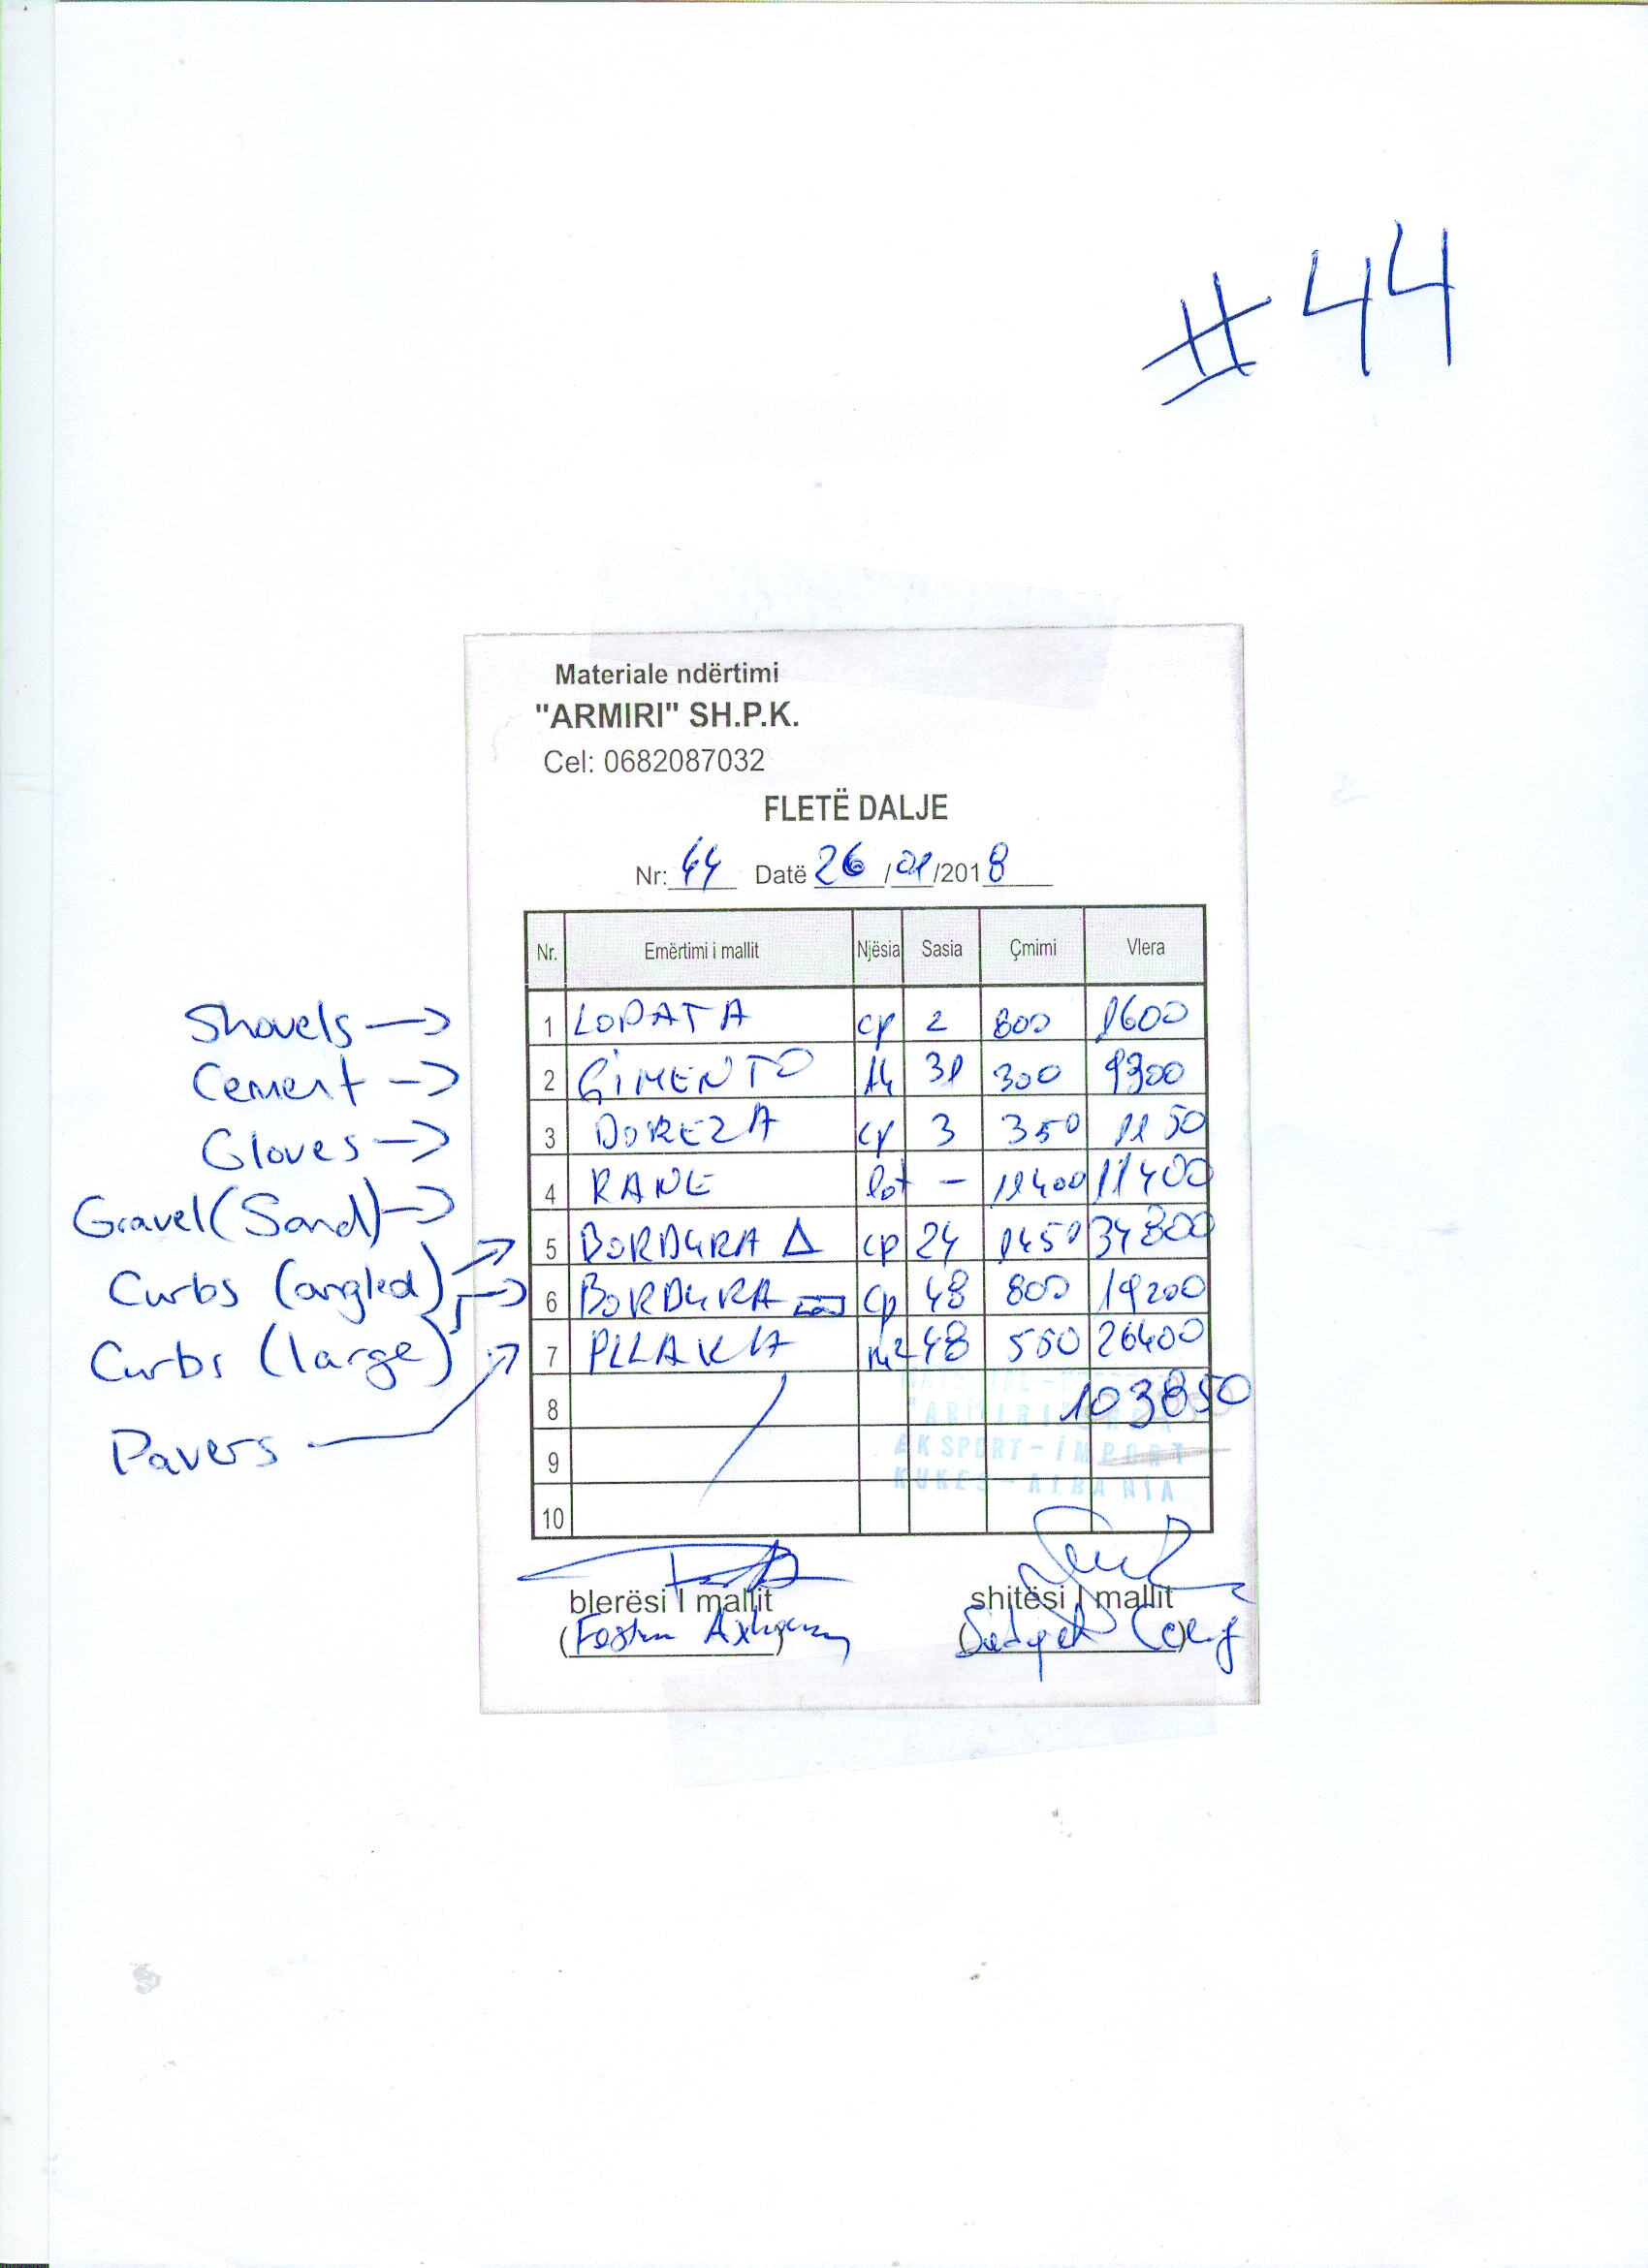 #44
Materiale ndërtimi
"ARMIRI" SH.P.K.
Cel: 0682087032
FLETË DALJE
Nr: 44 Datë 26/01/2018
Nr. Emërtimi i mallit Njësia Sasia Çmimi Vlera
Shovels → 1 LOPATA cp 2 800 1600
Cement → 2 ÇIMENTO 31 300 9300
Gloves → 3 DOREZA cp 3 350 1150
Gravel (Sand) → 4 RANE lot - 11400 11400
Curbs (angled) → 5 BORDURA Δ cp 24 1450 34800
Curbs (large) → 6 BORDURA cp 48 800 19200
Pavers → 7 PLLAKA m2 48 550 26400
8 103850
9
10
MATERIAL-
"ARMIRI"
EKSPORT-IMPORT
KUKES-ALBANIA
blerësi I mallit shitësi I mallit